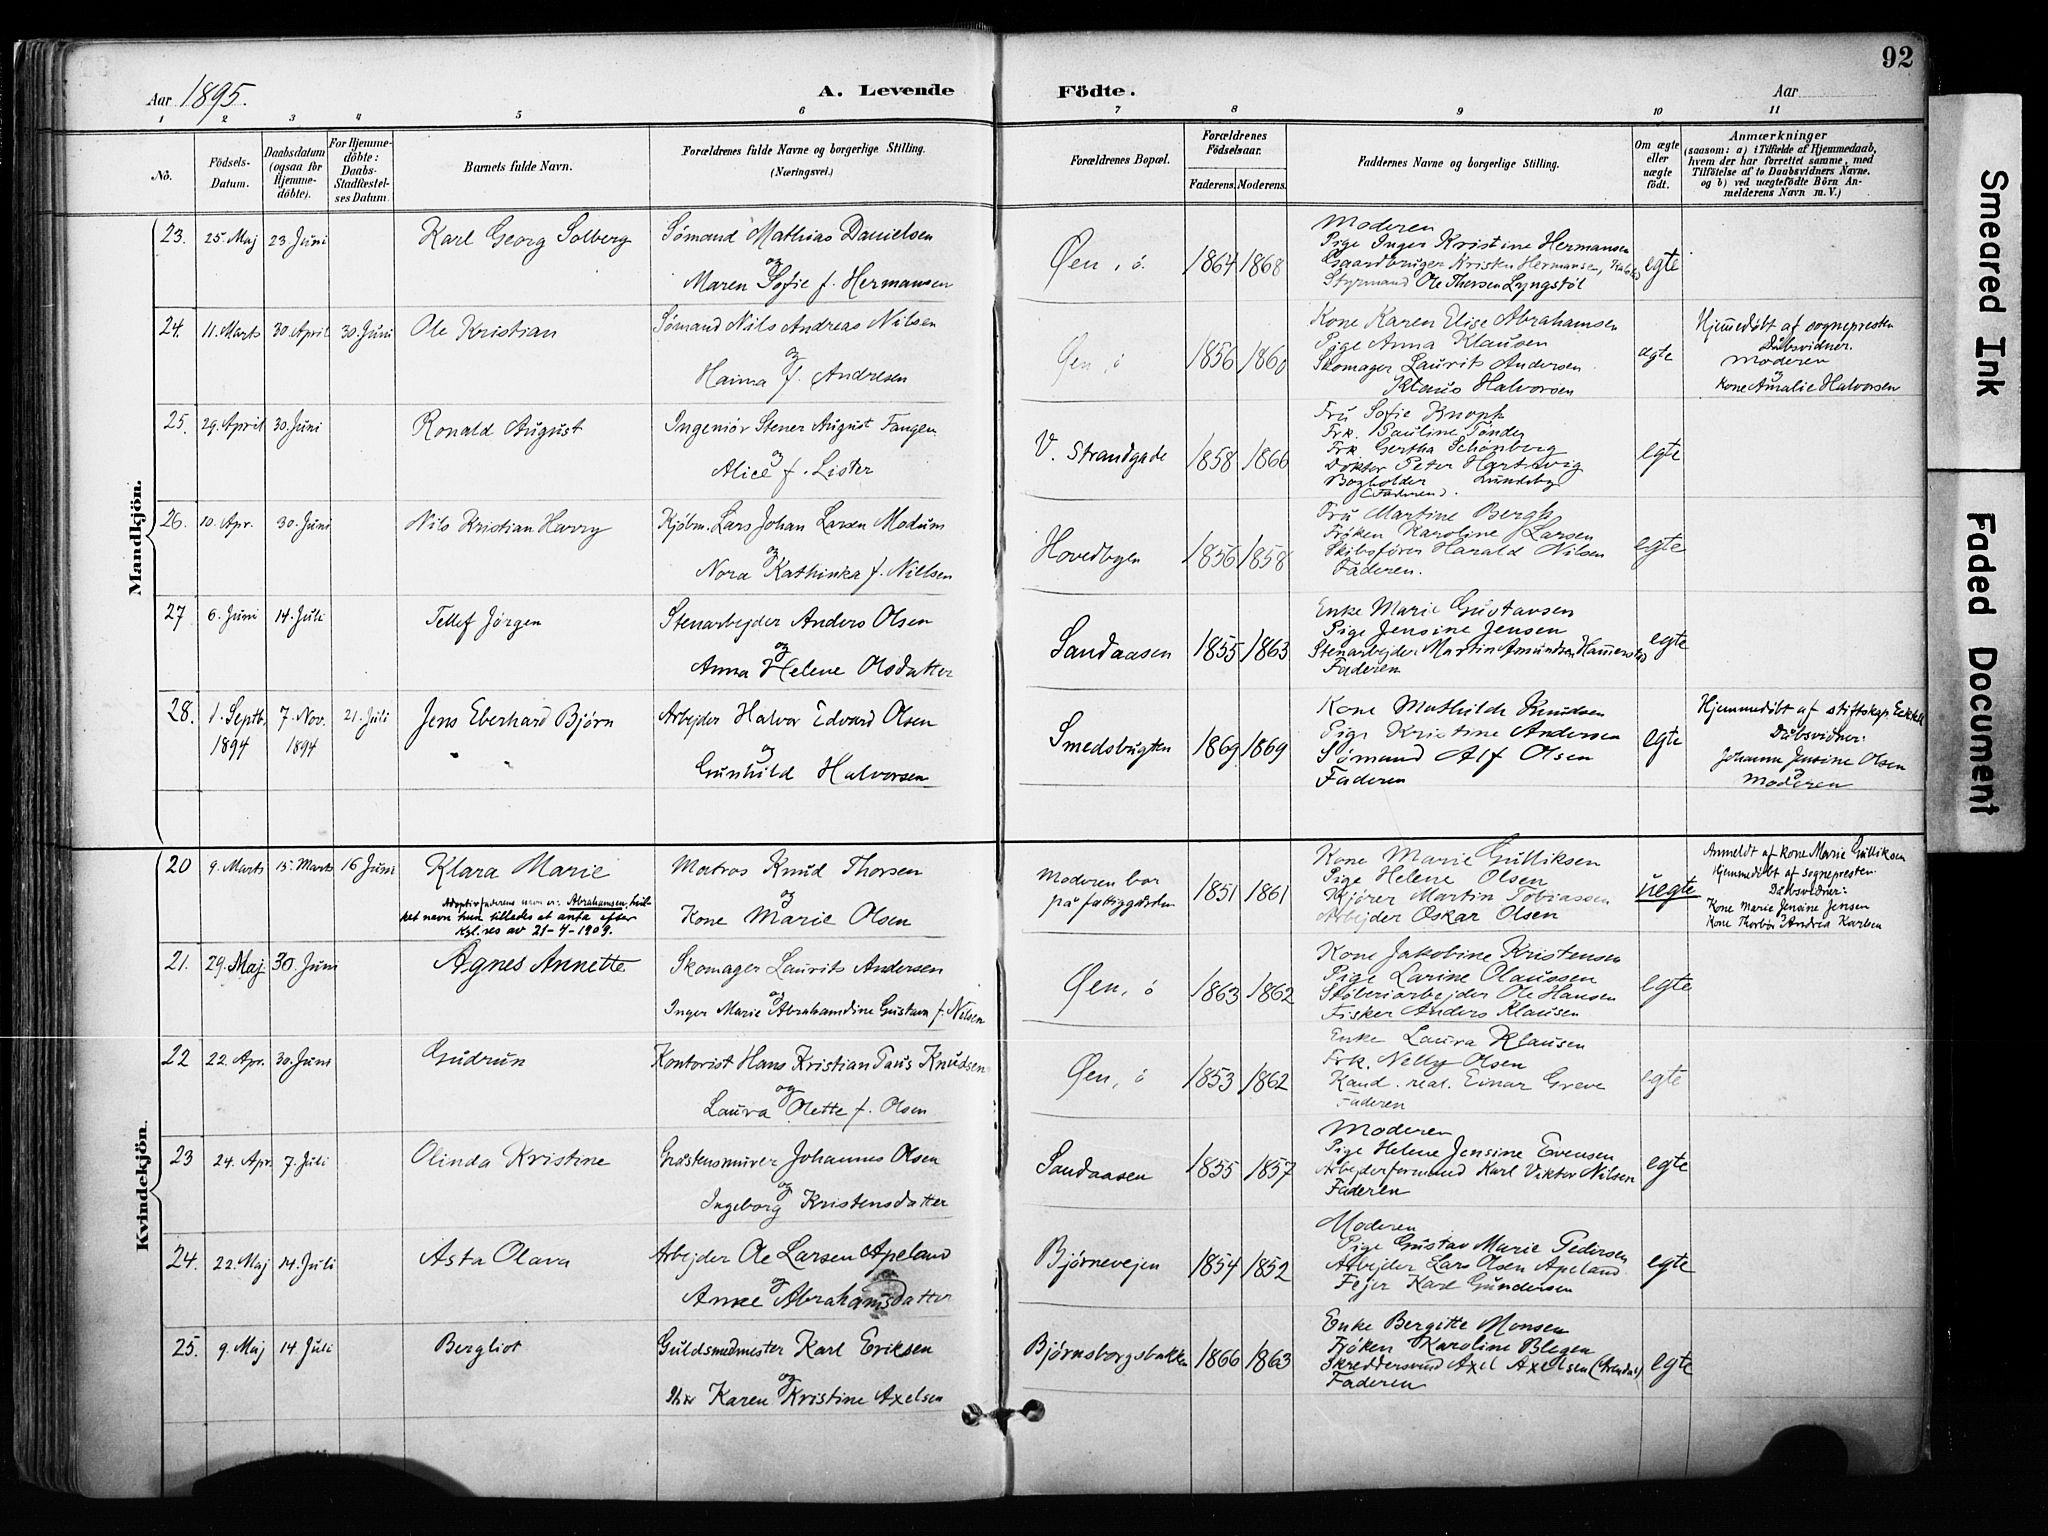 92
Aar 1895.
A. Levende Födte.
Aar
1 2 3 4 5 6 7 8 9 10 11
Nô.
Födsels-Datum.
Daabsdatum (ogsaa for Hjemme-döbte).
For Hjemme-döbte: Daabs-Stadfæstel-ses Datum.
Barnets fulde Navn.
Forældrenes fulde Navne og borgerlige Stilling.
(Næringsvei.)
Forældrenes Bopæl.
Forældrenes Födselsaar.
Faderens. Moderens.
Faddernes Navne og borgerlige Stilling.
Om ægte eller uægte födt.
Anmærkninger
(saasom: a) i Tilfælde af Hjemmedaab,
hvem der har forrettet samme, med
Tilföielse af to Daabsvidners Navne.
og b) ved uægtefödte Börn An-
melderens Navn m. V.)
Mandkjön.
23. 25. Maj 23 Juni Karl Georg Solberg
Sömand Mathias Danielsen
og
Maren Sofie f. Hermansen
Øen, ö. 1864 1868
Moderen
Pige Inger Kristine Hermansen
Gaardbruger Kristen Hermansen,
Styrmand Ole Thorsen Lyngstöl
egte
24. 11. Marts 30. April 30. Juni Ole Kristian
Sömand Nils Andreas Nilsen
og
Haima f. Andresen
Øen, ö 1856 1860
Kone Karen Elise Abrahamsen
Pige Anna Klausen
Skomager Laurits Andersen
Klaus Halvorsen
ægte
Hjemedöbt af sognepresten
Dåbsvidner.
Moderen
og
Kone Amalie Halvorsen
25. 29. April 30. Juni Ronald August
Ingeniör Stener August Fangen
og
Alice f. Lister
V. Strandgade 1858 1866
Fru Sofie Knoph
Frk. Pauline Tönder
Frk Gertha Schönberg
Doktor Peter Hartvig
Bogholder Lundeby
(Faderen).
egte
26. 10. Apr. 30. Juni Nils Kristian Harry
Kjöbm. Lars Johan Larsen Modum
og
Nora Kathinka f. Nielsen
Hovedbyen 1856 1858
Fru Martine Bergh
Fröken Karoline Larsen
Skibsförer Harald Nilsen
Faderen.
egte
27 6. Juni 14. Juli Tellef Jörgen
Stenarbejder Anders Olsen
og
Anna Helene Olsdatter
Sandaasen 1855 1863
Enke Marie Gustavsen
Pige Jensine Jensen
Stenarbejder Martin Amundsen
Faderen
egte
28. 1. Septb. 1894 7. Nov. 1894 21. Juli Jens Eberhard Björn
Arbejder Halvor Edvard Olsen
og
Gunhild Halvorsen
Smedsbugten 1869 1869
Kone Mathilde Knudsen
Pige Kristine Andersen
Sömand Alf Olsen
Faderen
egte
Hjemmedöbt af stiftskap.
Dåbsvidner:
Johanne Jensine Olsen
og
Moderen
Kvindekjön.
20 9. Marts 15. Marts 16 Juni Klara Marie
Adoptivfaderens navn er: Abrahamsen, hvil-
ket navn hun tillades at anta efter
kgl. res av 21-4-1909.
Matros Knud Thorsen
og
Kone Marie Olsen
Moderen bor
på fattiggården
1851 1861
Kone Marie Gulliksen
Pige Helene Olsen
Kjörer Martin Tobiassen
Arbejder Oskar Olsen
uegte
Anmeldt af Kone Marie Gulliksen
Hjemmedöbt af sognepresten
Dåbsvidner:
Kone Marie Jensine Jensen
Kone Andrea Karlsen
21. 29. Maj. 30. Juni Agnes Annette
Skomager Laurits Andersen
og
Inger Marie Abrahamdine Gustava f. Nilsen
Øen, ö 1863 1862
Kone Jakobine Kristensen
Pige Larine Olaussen
Stöberiarbejder Ole Hansen
Fisker Anders Klausen
egte
22 22. Apr. 30. Juni Gudrun
Kontorist Hans Kristian Paus Knudsen
og
Laura Olette f. Olsen
Øen, ö 1853 1862
Enke Laura Klausen
Frk. Nelly Olsen
Kand. real. Einar Greve
Faderen
egte
23 24. Apr. 7. Juli Olinda Kristine
Gråstensmurer Johannes Olsen
og
Ingeborg Kristensdatter
Sandaasen 1855 1857
Moderen
Pige Helene Jensine Evensen
Arbejderformand Karl Viktor Nilsen
Faderen
egte
24. 22. Maj 14. Juli Asta Olava
Arbejder Ole Larsen Apeland
og
Anne Abrahamsdatter
Björnevejen 1854 1852
Moderen
Pige Gustav Marie Pedersen
Arbejder Lars Olsen Apeland.
Fejer Karl Gundersen
egte
25. 9. Maj 14. Juli Bergliot
Guldsmedmester Karl Eriksen
og
Karen Kristine Axelsen
Björnsborgsbakken 1866 1863
Enke Bergitte Monsen
Fröken Karoline Blegen
Skreddersvend Axel Axelsen (Arendal)
Faderen
egte
Smeared Ink
Faded Document